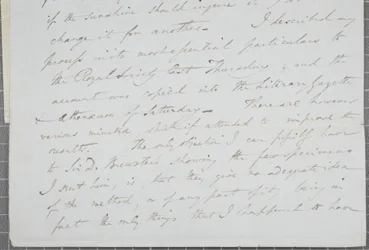 if the sunshine should
change it for another. I described my
process in its most essential particulars to
the Royal Society last Thursday, and the
account was copied into the Literary Gazette
& Athenaeum of Saturday. There are however
various minutiae which if attended to improve the
result. The only objection I can possibly have
to Sir D. Brewster's showing the few specimens
I sent him, is that they give no adequate idea
of the method, or of any part of it, being in
fact the only things that I happened to have